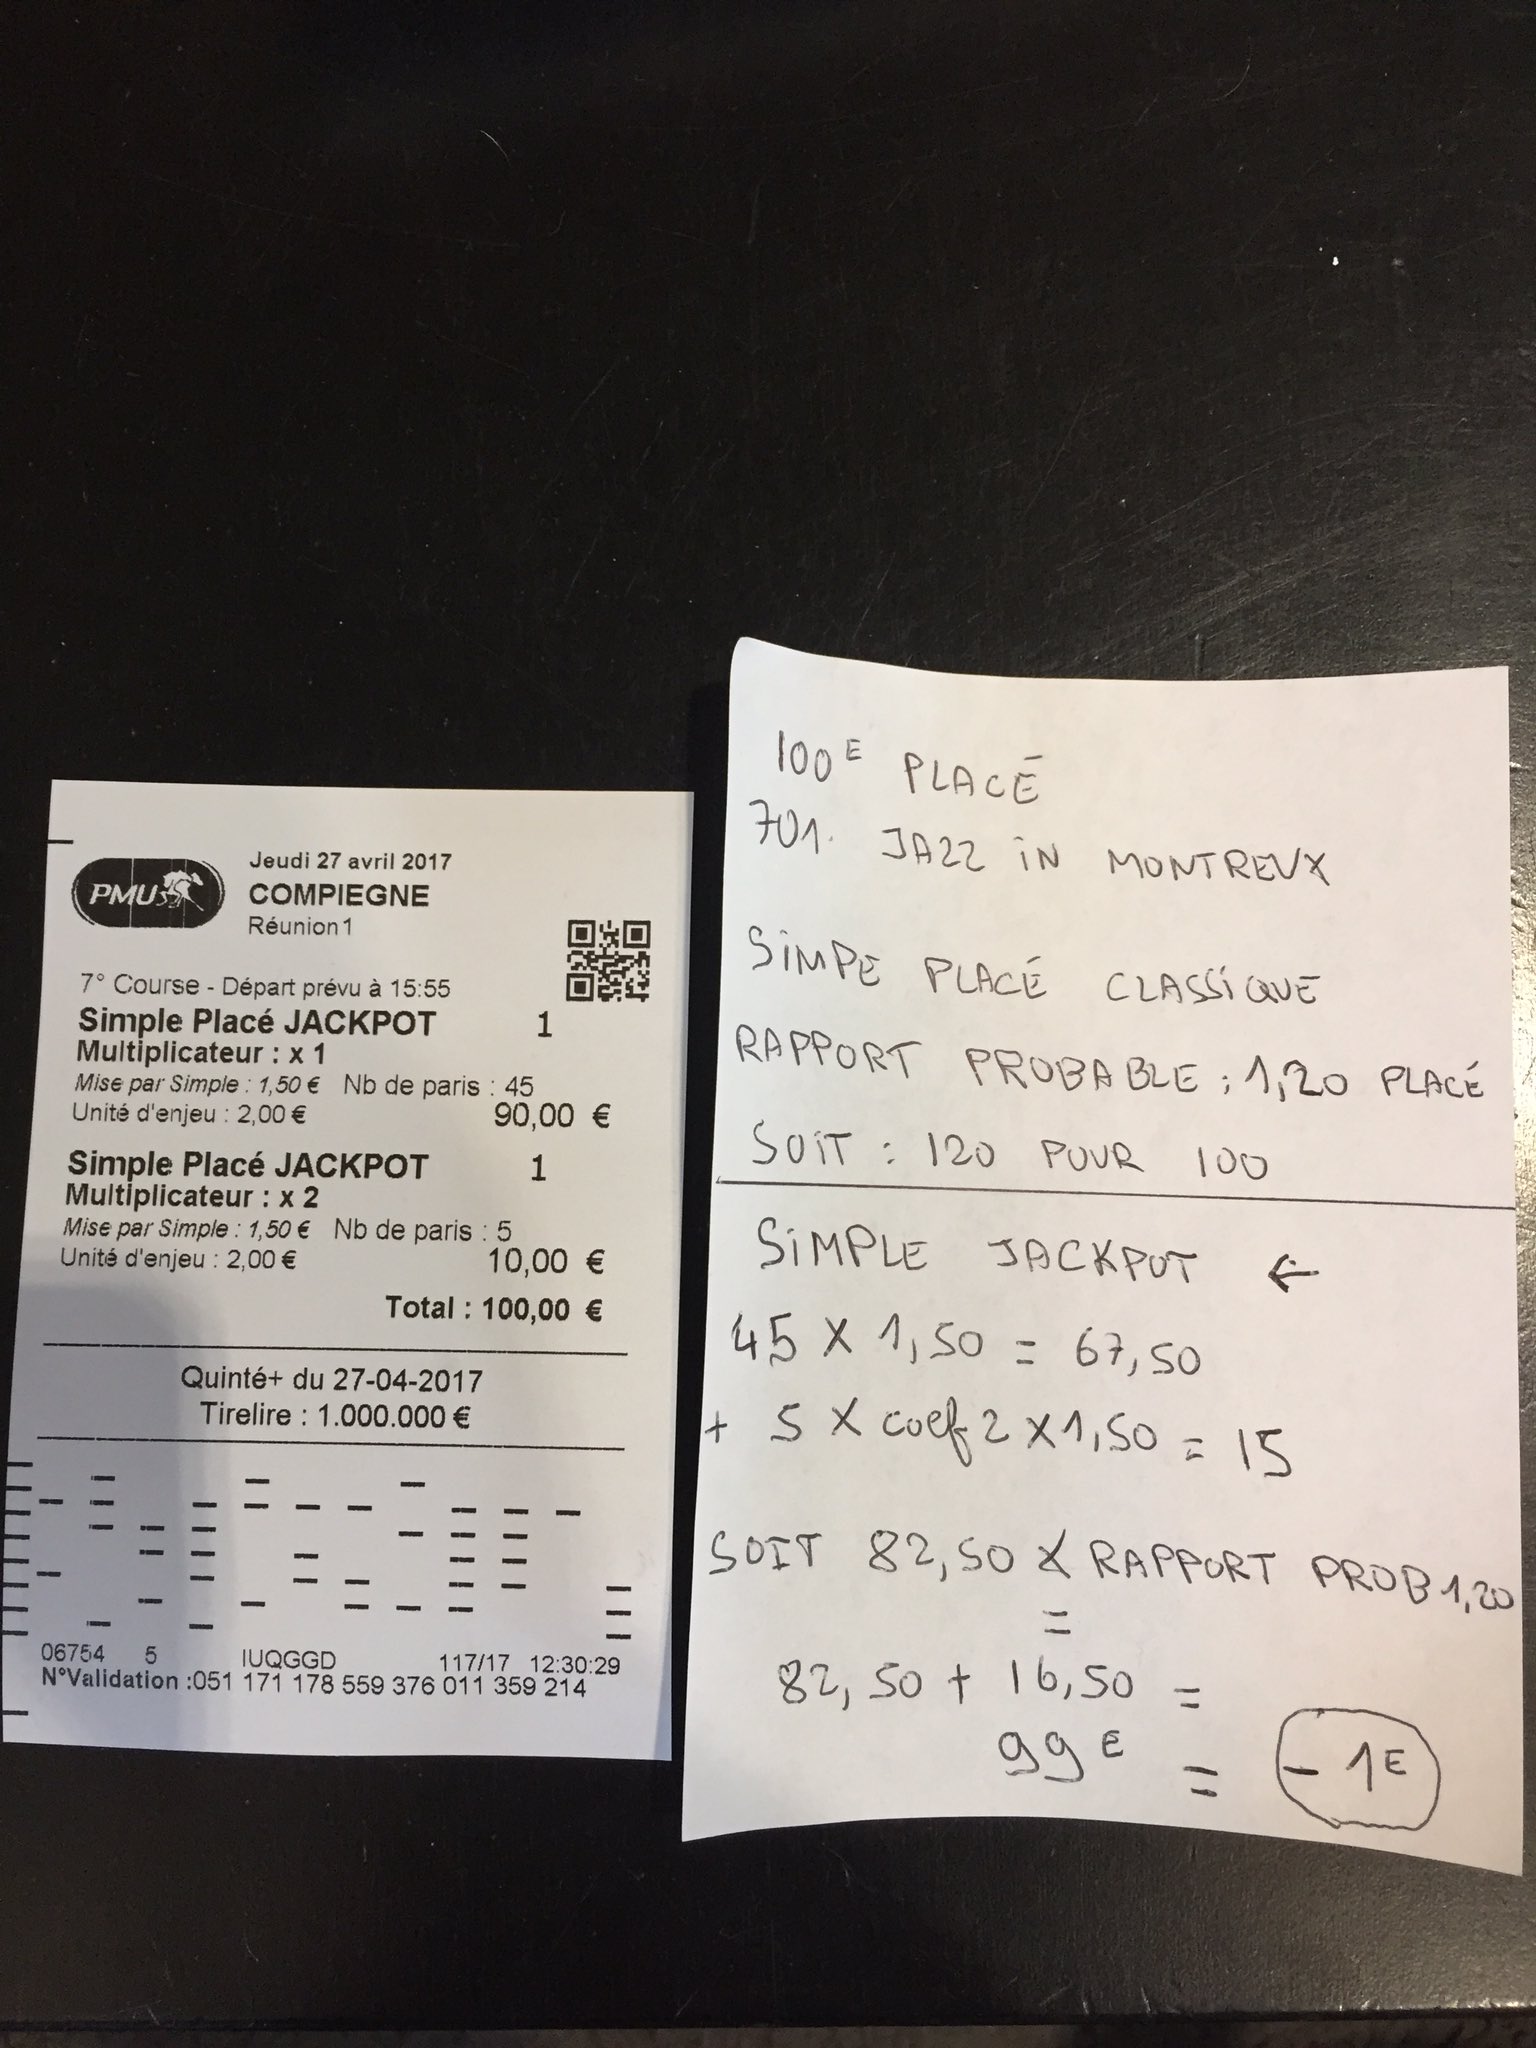 PMU
Jeudi 27 avril 2017
COMPIEGNE
Réunion 1
7° Course - Départ prévu à 15:55
Simple Placé JACKPOT 1
Multiplicateur : x 1
Mise par Simple : 1,50 € Nb de paris : 45
Unité d'enjeu : 2,00 € 90,00 €
Simple Placé JACKPOT 1
Multiplicateur : x 2
Mise par Simple : 1,50 € Nb de paris : 5
Unité d'enjeu : 2,00 € 10,00 €
Total : 100,00 €
Quinté+ du 27-04-2017
Tirelire : 1.000.000 €
06754 5 IUQGGD 117/17 12:30:29
N°Validation :051 171 178 559 376 011 359 214
100E PLACÉ
701. JAZZ iN MONTREUX
SiMPE PLACÉ CLASSiQUE
RAPPORT PROBABLE : 1,20 PLACÉ
SOiT : 120 POUR 100
SiMPLE JACKPOT ←
45 X 1,50 = 67,50
+ 5 X coef 2 X 1,50 = 15
SOIT 82,50 X RAPPORT PROB 1,20
=
82,50 + 16,50 =
99E = - 1E